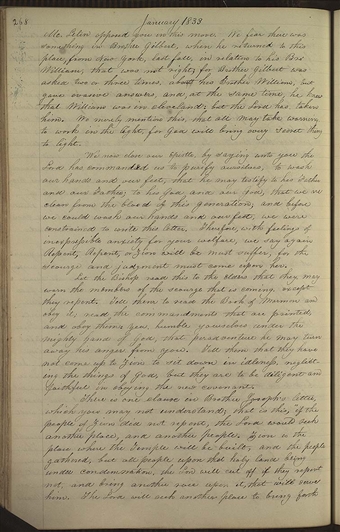 268
January 1833
we expend you in this move. We fear there was
something in Brother Gilbert, when he returned to this
place, from New York, last fall, in relation to his Bro
William, that was not right; for Brother Gilbert was
asked two or three times, about his Brother William, but
gave evasive answers, and at the same time, he knew
that William was in Cleveland; but the Lord has taken
him. We merely mention this, that all may take warning
to work in the light, for God will bring every secret thing
to light.
We now close our epistle, by saying unto you, the
Lord has commanded us to purify ourselves, to wash
our hands and our feet, that he may testify to his Father
and our Father, to his God, and our God, that we are
clean from the blood of this generation; and before
we could wash our hands and our feet, we were
constrained to write this letter. Therefore, with feelings of
inexpressible anxiety for your welfare, we say again
Repent, Repent, or Zion will be must suffer, for the
scourge and judgment must come upon her.
Let the Bishop read this to the Elders, that they may
warn the members of the scourge that is coming, except
they repent. Tell them to read the Book of Mormon and
obey it; read the commandments that are printed,
and obey them: yea, humble yourselves under the
mighty hand of God, that peradventure he may turn
away his anger from you. Tell them that they have
not come up to Zion to set down in idleness, neglect-
ing the things of God, but they are to be diligent and
faithful in obeying the new covenant.
There is one clause in Brother Joseph's letter,
which you may not understand; that is this, "if the
people of Zion did not repent, the Lord would seek
another place, and another people. Zion is the
place where the temple will be built, and the people
gathered, but all people upon that holy land being
under condemnation, the Lord will cut off, if they repent
not, and bring another race upon it, that will serve
him. The Lord will seek another place to bring forth